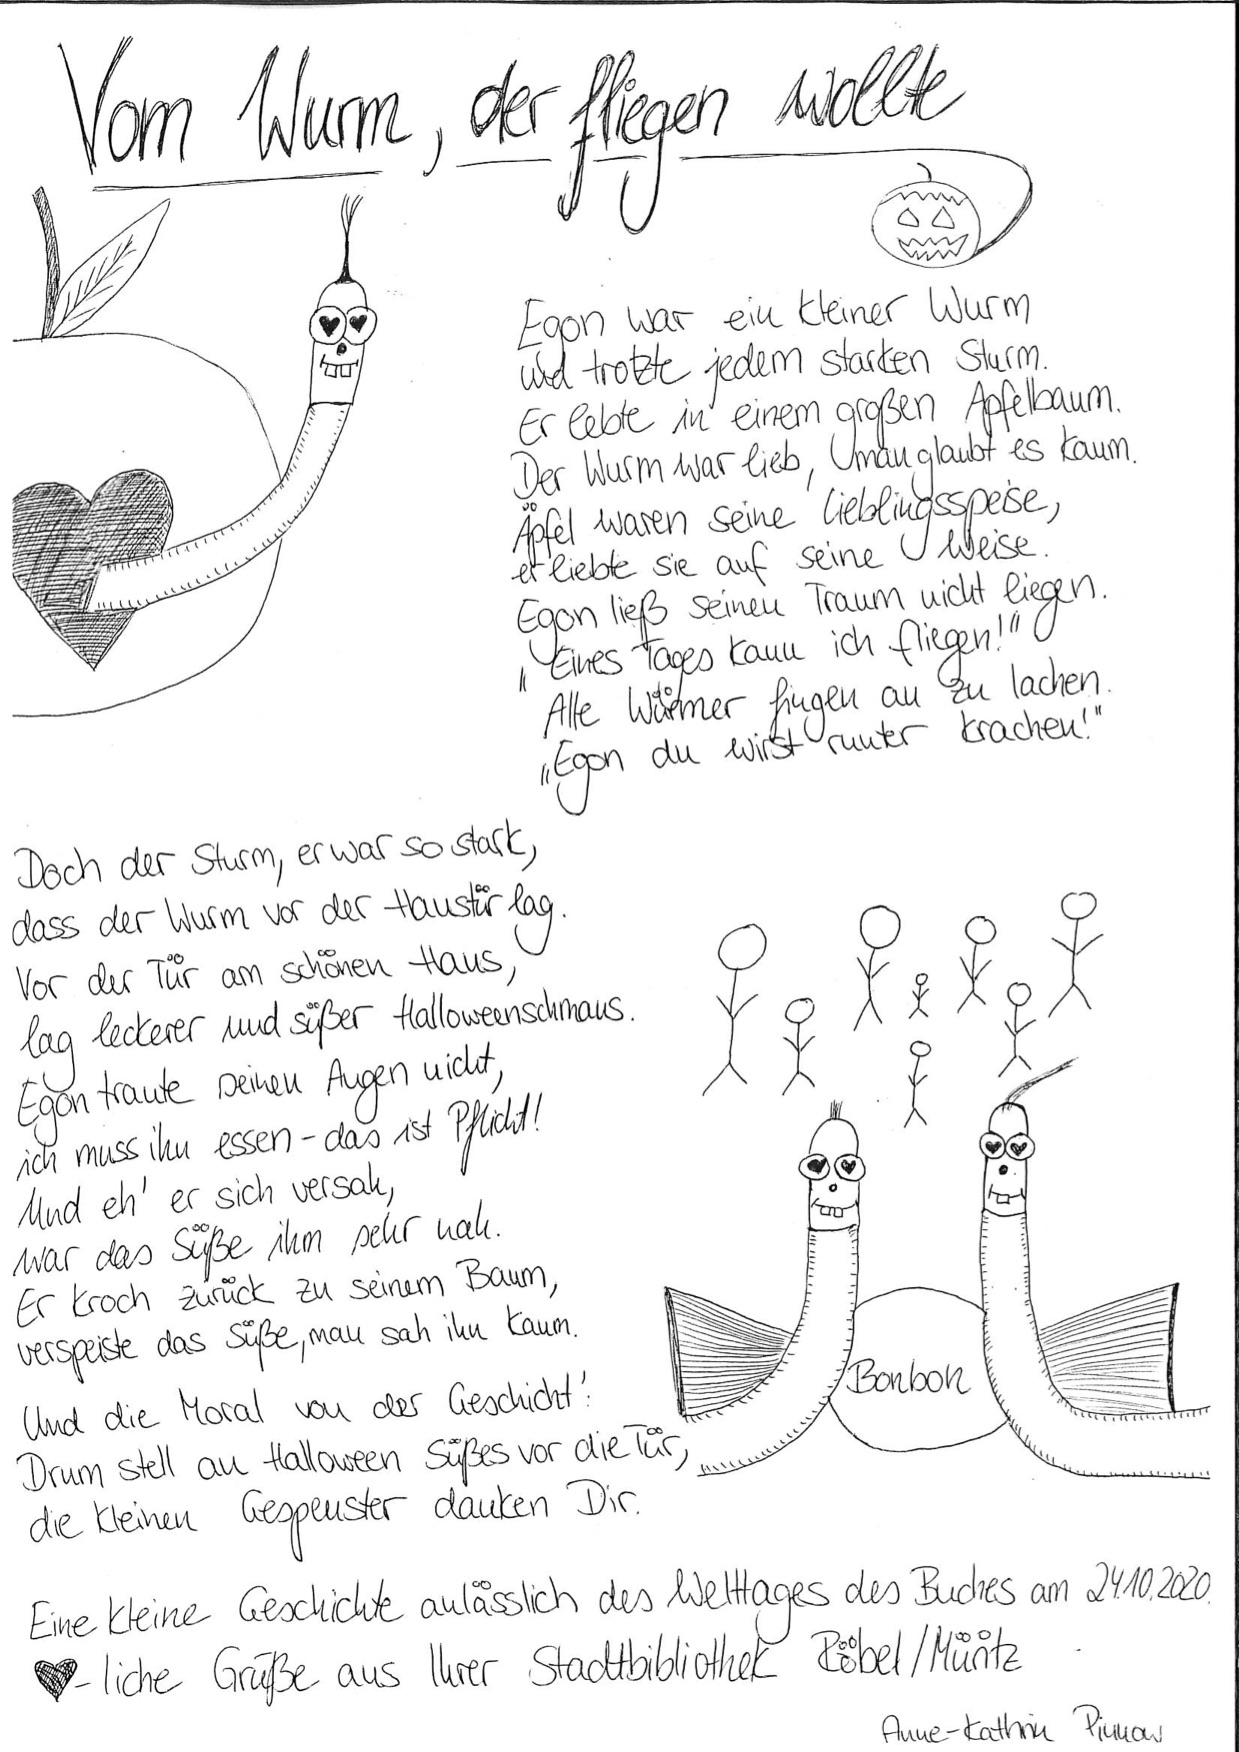 Vom Wurm, der fliegen wollte
Egon war ein kleiner Wurm
und trotzte jedem starken Sturm.
Er lebte in einem großen Apfelbaum.
Der Wurm war lieb, man glaubt es kaum.
Äpfel waren seine Lieblingsspeise,
er liebte sie auf seine Weise.
Egon ließ seinen Traum nicht liegen.
„Eines Tages kann ich fliegen!"
Alle Würmer fingen an zu lachen.
„Egon du wirst runter krachen!"
Doch der Sturm, er war so stark,
dass der Wurm vor der Haustür lag.
Vor der Tür am schönen Haus,
lag leckerer und süßer Halloweenschmaus.
Egon traute seinen Augen nicht,
ich muss ihn essen - das ist Pflicht!
Und eh' er sich versah,
war das Süße ihm sehr nah.
Er kroch zurück zu seinem Baum,
verspeiste das Süße, man sah ihn kaum.
Und die Moral von der Geschicht':
Drum stell an Halloween Süßes vor die Tür,
die kleinen Gespenster danken Dir.
Bonbon
Eine kleine Geschichte anlässlich des Welttages des Buches am 24.10.2020.
-liche Grüße aus Ihrer Stadtbibliothek Röbel/Müritz
Anne-Kathrin Pinnow